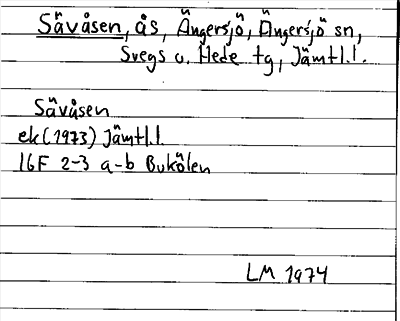 Sävåsen, ås, Ängersjö, Ängersjö sn,
Svegs o. Hede tg, Jämtl.l.
Sävåsen
ek (1973) Jämtl.l.
16F 2-3 a-b Bukölen
LM 1974